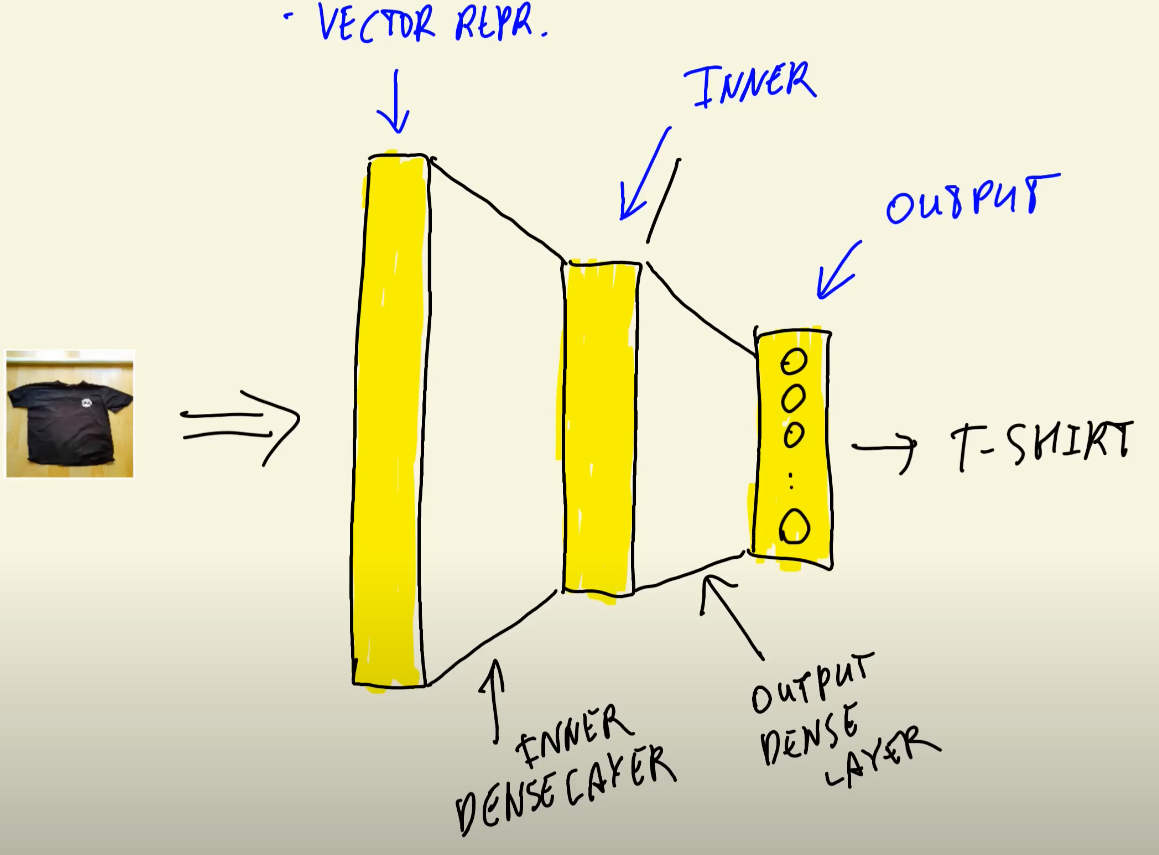 · VECTOR REPR.
INNER
OUTPUT
T-SHIRT
INNER
DENSE LAYER
OUTPUT
DENSE
LAYER